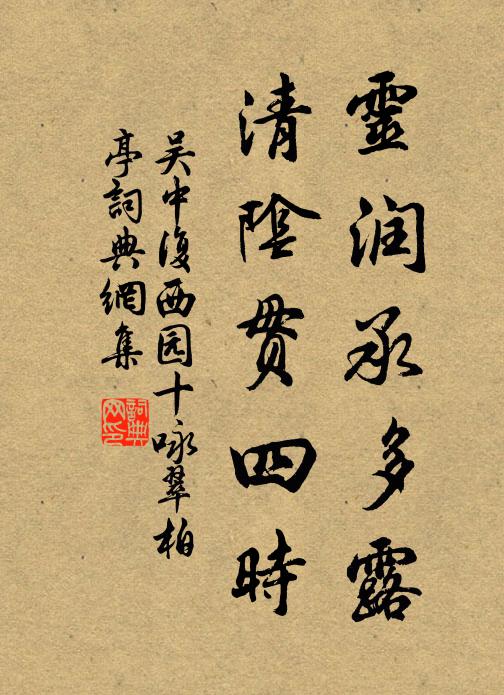 靈润承多露
清陰貫四時
吴中復西园十咏翠柏
亭詞典網集
詞典
网印